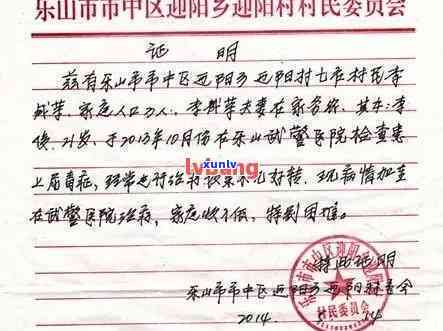 乐山市市中区迎阳乡迎阳村村民委员会
证 明
兹有乐山市市中区迎阳乡迎阳村七组村民李
家庭人口 人:李 夫妻在家务农,其子:李
俊,21岁,于2013年10月份在乐山武警医院检查患
上尿毒症,经常进行治疗效果不见好转,现病情加重
在武警医院治疗,家庭收入低,特别困难。
特此证明
乐山市市中区迎阳乡迎阳村委会
2014
村民委员会
xunlv
lvbang